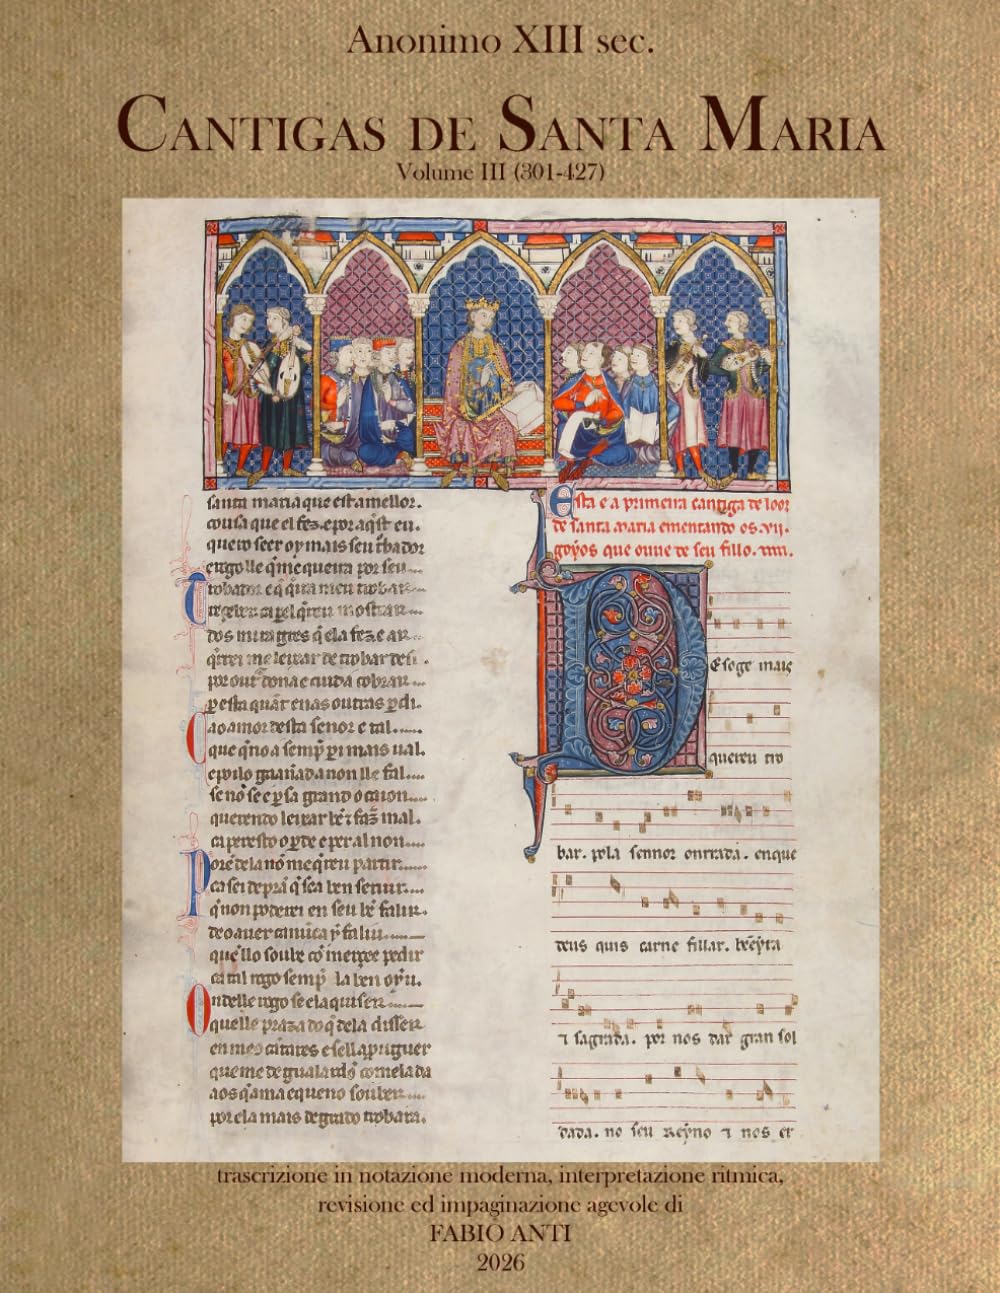 Anonimo XIII sec.
CANTIGAS DE SANTA MARIA
Volume III (301-427)
santa maria que est a mellor.
cousa que el fez. e por aq̃st eu.
quero seer oy mais seu t̃bador
e rogo lle q̃ me queira por seu
Trobador e q̃ q̃ira meu trobar
reçeber. ca per el q̃r eu mostrar
dos miragres q̃ ela fez. e ar
q̃rrei me leixar de trobar desi.
por out̃ dona e cuida cobrar
p̱ esta quãt enas outras p̱di.
Ca o amor desta sennor e tal.
que q̃no a semp̃ p̱i mais ual.
e poilo gaannada non lle fal
se nõ se e p̱ sa grand ocaion.
querendo leixar bẽ ⁊ faz̃ mal.
ca per esto o p̱de e per al non.
Porẽ dela nõ me q̃r eu partir
ca sei de pran q̃ sea ben seruir.
q̃ non poderei en seu bẽ falir.
de o auer ca nũca y faliu.
que llo soube cõ merçee pedir
ca tal rogo semp̃ la ben oyu.
Onde lle rogo se ela quiser.
quelle praza do q̃ dela disser
en meus cãtares e sell a p̱uguer
que me de gualardõ com ela da
aos q̃ ama e queno souber.
por ela mais de grado trobara.
Esta e a primeira cantiga de loor
de santa maria ementando os .vii.
goyos que ouue de seu fillo.
Des oge mais
quer eu tro
bar. pola sennor onrrada. en que
deus quis carne fillar. bẽeyta
⁊ sagrada. por nos dar gran sol
dada. no seu reyno ⁊ nos er
trascrizione in notazione moderna, interpretazione ritmica,
revisione ed impaginazione agevole di
FABIO ANTI
2026